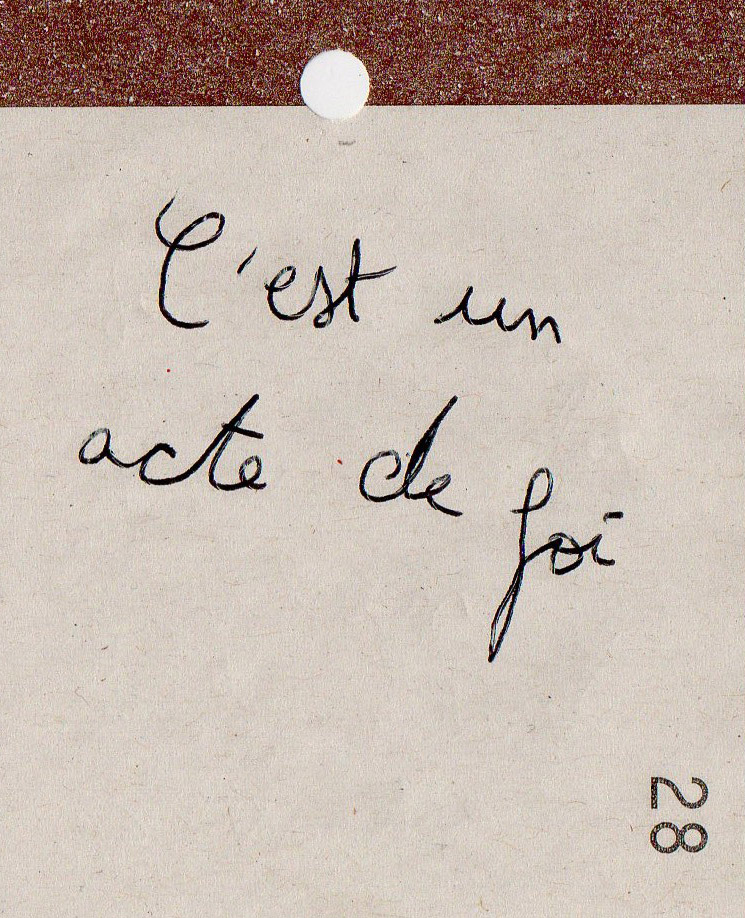 C'est un
acte de foi
28